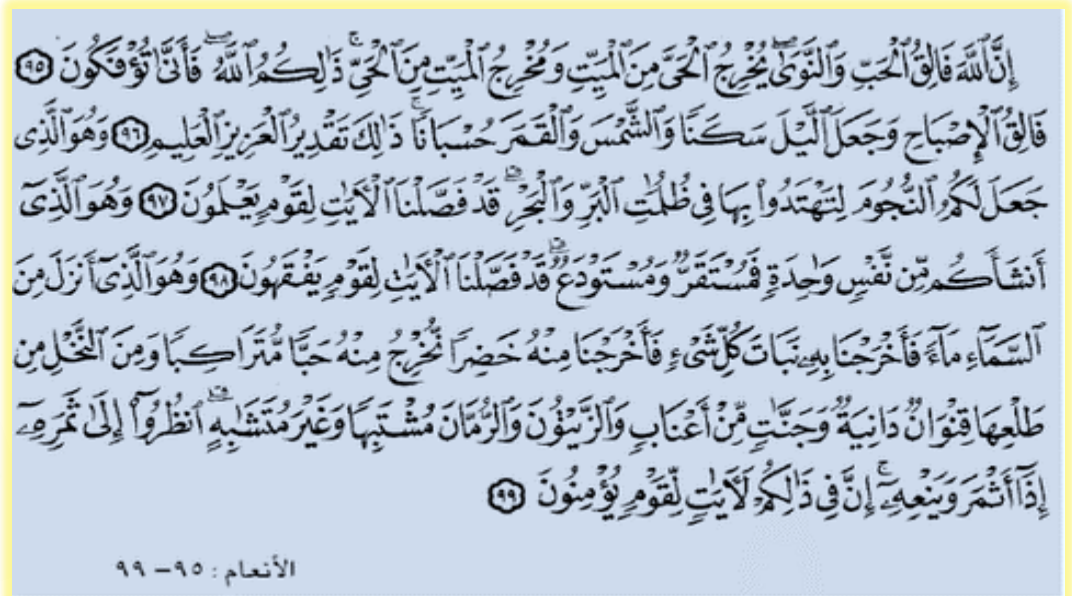 إِنَّ ٱللَّهَ فَالِقُ ٱلْحَبِّ وَٱلنَّوَىٰۖ يُخْرِجُ ٱلْحَىَّ مِنَ ٱلْمَيِّتِ وَمُخْرِجُ ٱلْمَيِّتِ مِنَ ٱلْحَىِّۚ ذَٰلِكُمُ ٱللَّهُۖ فَأَنَّىٰ تُؤْفَكُونَ ٩٥
فَالِقُ ٱلْإِصْبَاحِ وَجَعَلَ ٱلَّيْلَ سَكَنًا وَٱلشَّمْسَ وَٱلْقَمَرَ حُسْبَانًاۚ ذَٰلِكَ تَقْدِيرُ ٱلْعَزِيزِ ٱلْعَلِيمِ ٩٦ وَهُوَ ٱلَّذِى
جَعَلَ لَكُمُ ٱلنُّجُومَ لِتَهْتَدُوا۟ بِهَا فِى ظُلُمَٰتِ ٱلْبَرِّ وَٱلْبَحْرِۗ قَدْ فَصَّلْنَا ٱلْءَايَٰتِ لِقَوْمٍ يَعْلَمُونَ ٩٧ وَهُوَ ٱلَّذِىٓ
أَنشَأَكُم مِّن نَّفْسٍ وَٰحِدَةٍ فَمُسْتَقَرٌّ وَمُسْتَوْدَعٌۗ قَدْ فَصَّلْنَا ٱلْءَايَٰتِ لِقَوْمٍ يَفْقَهُونَ ٩٨ وَهُوَ ٱلَّذِىٓ أَنزَلَ مِنَ
ٱلسَّمَآءِ مَآءً فَأَخْرَجْنَا بِهِۦ نَبَاتَ كُلِّ شَىْءٍ فَأَخْرَجْنَا مِنْهُ خَضِرًا نُّخْرِجُ مِنْهُ حَبًّا مُّتَرَاكِبًا وَمِنَ ٱلنَّخْلِ مِن
طَلْعِهَا قِنْوَانٌ دَانِيَةٌ وَجَنَّٰتٍ مِّنْ أَعْنَابٍ وَٱلزَّيْتُونَ وَٱلرُّمَّانَ مُشْتَبِهًا وَغَيْرَ مُتَشَٰبِهٍۗ ٱنظُرُوٓا۟ إِلَىٰ ثَمَرِهِۦٓ
إِذَآ أَثْمَرَ وَيَنْعِهِۦٓۚ إِنَّ فِى ذَٰلِكُمْ لَءَايَٰتٍ لِّقَوْمٍ يُؤْمِنُونَ ٩٩
الأنعام : ٩٥ – ٩٩